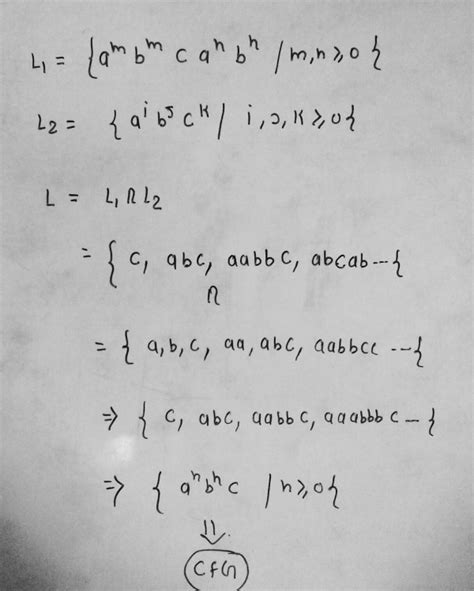 L₁ = {aᵐ bᵐ c aⁿ bⁿ / m,n ≥ 0 }
L₂ = { aⁱ bʲ cᵏ / i, j, k ≥ 0 }
L = L₁ ∩ L₂
= { c, abc, aabbc, abcab --- }
∩
= { a, b, c, aa, abc, aabbcc --- }
⇒ { c, abc, aabbc, aaabbbc -- }
⇒ { aⁿ bⁿ c / n ≥ 0 }
⇓
CFG